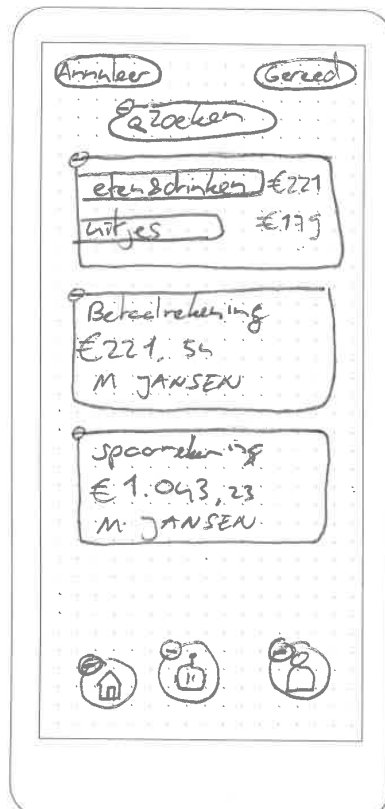 Annuleer Gereed
Zoeken
eten&drinken €221
uitjes €179
Betaalrekening
€221,54
M JANSEN
spaarrekening
€1.043,23
M. JANSEN